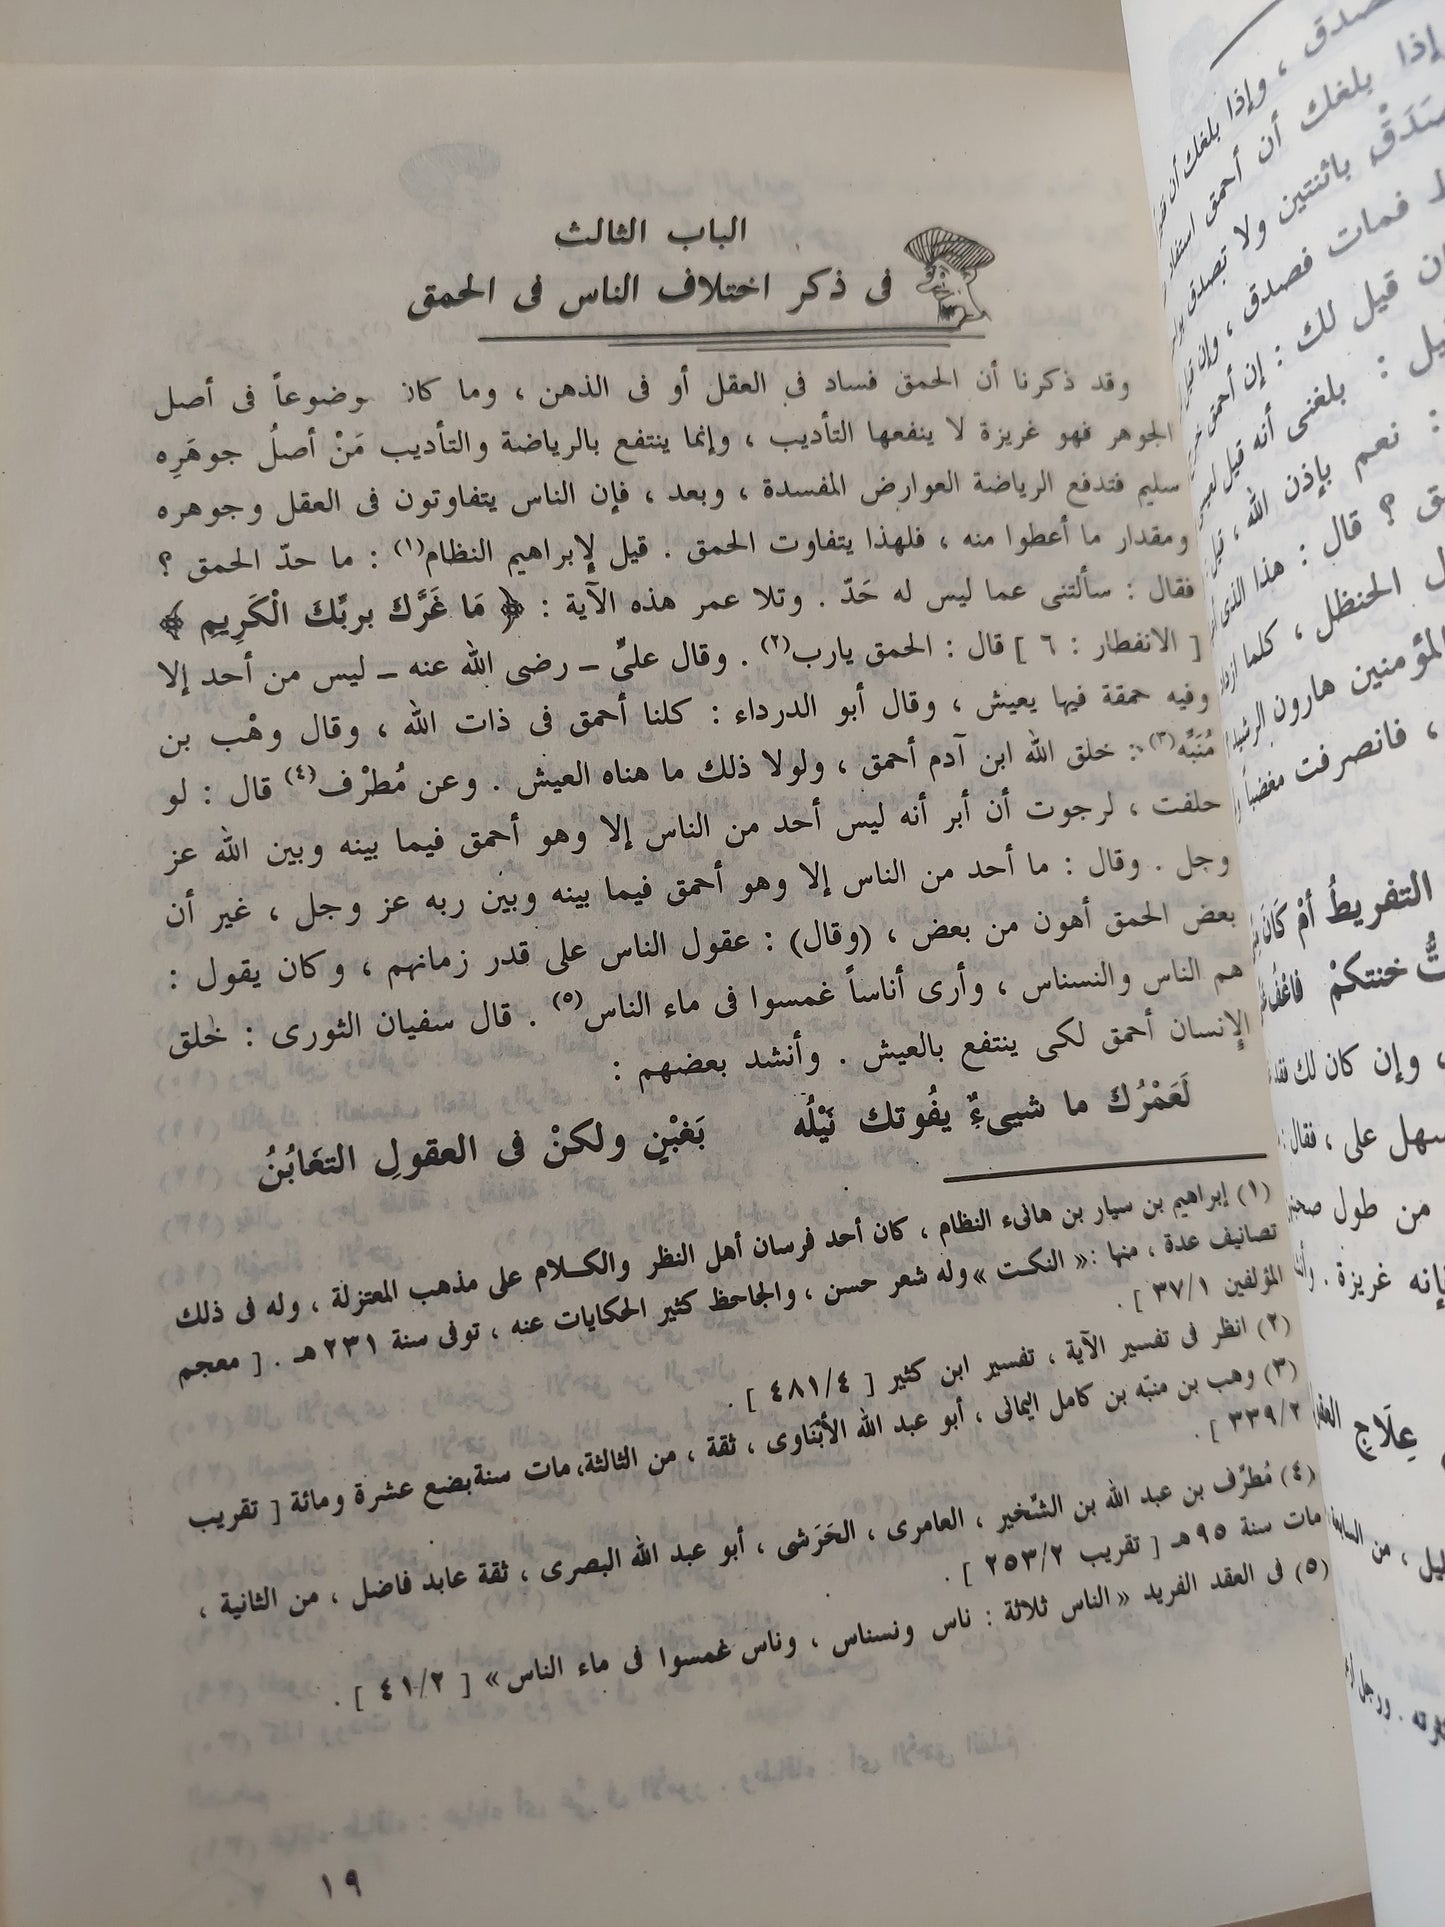 الباب الثالث
فى ذكر اختلاف الناس فى الحمق
وقد ذكرنا أن الحمق فساد فى العقل أو فى الذهن ، وما كان موضوعاً فى أصل
الجوهر فهو غريزة لا ينفعها التأديب ، وإنما ينتفع بالرياضة والتأديب مَنْ أصلُ جوهَرِه
سليم فتدفع الرياضة العوارض المفسدة ، وبعد ، فإن الناس يتفاوتون فى العقل وجوهره
ومقدار ما أعطوا منه ، فلهذا يتفاوت الحمق . قيل لإبراهيم النظام(١) : ما حدّ الحمق ؟
فقال : سألتنى عما ليس له حَدّ . وتلا عمر هذه الآية : ﴿ مَا غَرَّكَ بربِّكَ الْكَرِيمِ ﴾
[ الانفطار : ٦ ] قال : الحمق يارب(٢) . وقال علىّ ــ رضى الله عنه ــ ليس من أحد إلا
وفيه حمقة فيها يعيش ، وقال أبو الدرداء : كلنا أحمق فى ذات الله ، وقال وهْب بن
مُنَبِّه(٣) : خلق الله ابن آدم أحمق ، ولولا ذلك ما هناه العيش . وعن مُطرْف(٤) قال : لو
حلفت ، لرجوت أن أبر أنه ليس أحد من الناس إلا وهو أحمق فيما بينه وبين الله عز
وجل . وقال : ما أحد من الناس إلا وهو أحمق فيما بينه وبين ربه عز وجل ، غير أن
بعض الحمق أهون من بعض ، (وقال) : عقول الناس على قدر زمانهم ، وكان يقول :
هم الناس والنسناس ، وأرى أناساً غمسوا فى ماء الناس(٥) . قال سفيان الثورى : خلق
الإنسان أحمق لكى ينتفع بالعيش . وأنشد بعضهم :
لَعَمْرُكَ ما شيىءٌ يفُوتك نَيْلُه بَغبْنٍ ولكنْ فى العقولِ التغَابُنُ
(١) إبراهيم بن سيار بن هانىء النظام ، كان أحد فرسان أهل النظر والكلام على مذهب المعتزلة ، وله فى ذلك
تصانيف عدة ، منها : « النكت » وله شعر حسن ، والجاحظ كثير الحكايات عنه ، توفى سنة ٢٣١ هـ . [ معجم
المؤلفين ٣٧/١ ] .
(٢) انظر فى تفسير الآية ، تفسير ابن كثير [ ٤٨١/٤ ] .
(٣) وهب بن منبّه بن كامل اليمانى ، أبو عبد الله الأبْنَاوى ، ثقة ، من الثالثة، مات سنة بضع عشرة ومائة [ تقريب
٣٣٩/٢ ] .
(٤) مُطرِّف بن عبد الله بن الشّخير ، العامرى ، الحَرَشى ، أبو عبد الله البصرى ، ثقة عابد فاضل ، من الثانية ،
مات سنة ٩٥ هـ [ تقريب ٢٥٣/٢ ] .
(٥) فى العقد الفريد « الناس ثلاثة : ناس ونسناس ، وناس غمسوا فى ماء الناس » [ ٤١/٢ ] .
١٩
فصدق ، وإذا بلغك أن
إذا بلغك أن أحمق استفاد
باثنتين ولا تصدق
فمات فصدق ، وإن
قيل لك : إن أحمق
: بلغنى أنه قيل
: نعم بإذن الله ،
؟ قال : هذا الذى
الحنظل ، كلما ازداد
المؤمنين هارون الرشيد
، فانصرفت مغضباً
التفريطُ أمْ كَانَ
خنتكمْ
، وإن كان لك
سهل على ، فقال :
من طول
فإنه غريزة .
عِلَاجِ
، من
. ورجل